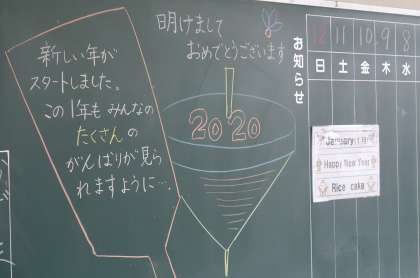 新しい年が
スタートしました。
この1年も みんなの
たくさんの
がんばりが見ら
れますように…。
明けまして
おめでとうございます
2020
お知らせ
12 11 10 9 8
日 土 金 木 水
Happy New Year
Rice cake